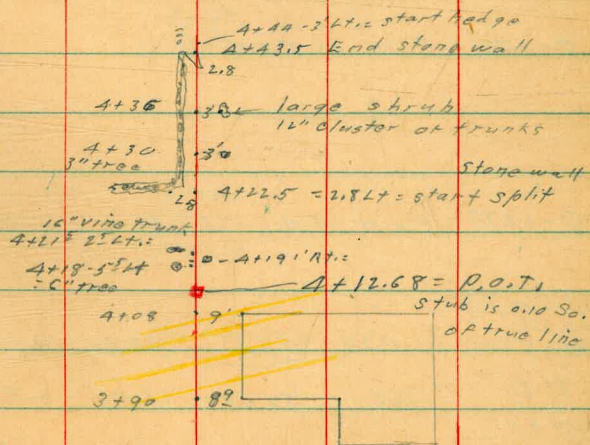 4+44 - 3' Lt. = start hedge
4+43.5 End stone wall
2.8
4+36 3'
large shrub
12" cluster of trunks
4+30 3'0
3" tree
stone wall
2.8 4+22.5 = 2.8 Lt = start split
16" vine trunk
4+21⁵ 2⁵ Lt. =
4+19 1' Rt. =
4+18 - 5⁵ Lt
= 6" tree
4+12.68 = P.O.T.
stub is 0.10 So.
of true line
4+08 9'
3+90 8⁹